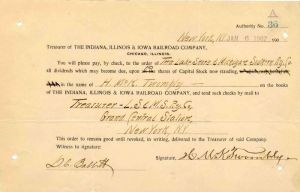 A
Authority No. 36
New York, NY JAN 6 1902
Treasurer of THE INDIANA, ILLINOIS & IOWA RAILROAD COMPANY,
CHICAGO, ILLINOIS.
You will please pay, by check, to the order of The Lake Shore & Michigan Southern Ry. Co.
all dividends which may become due upon shares of Capital Stock now standing
in the name of H. McK. Twombly on the books
of THE INDIANA, ILLINOIS & IOWA RAILROAD COMPANY, and send such checks by mail to
Treasurer L.S. & M.S. Ry. Co.
Grand Central Station,
New York, N.Y.
This order to remain good until revoked, in writing, delivered to the Treasurer of said Company.
Witness to signature:
Signature, H. McK. Twombly